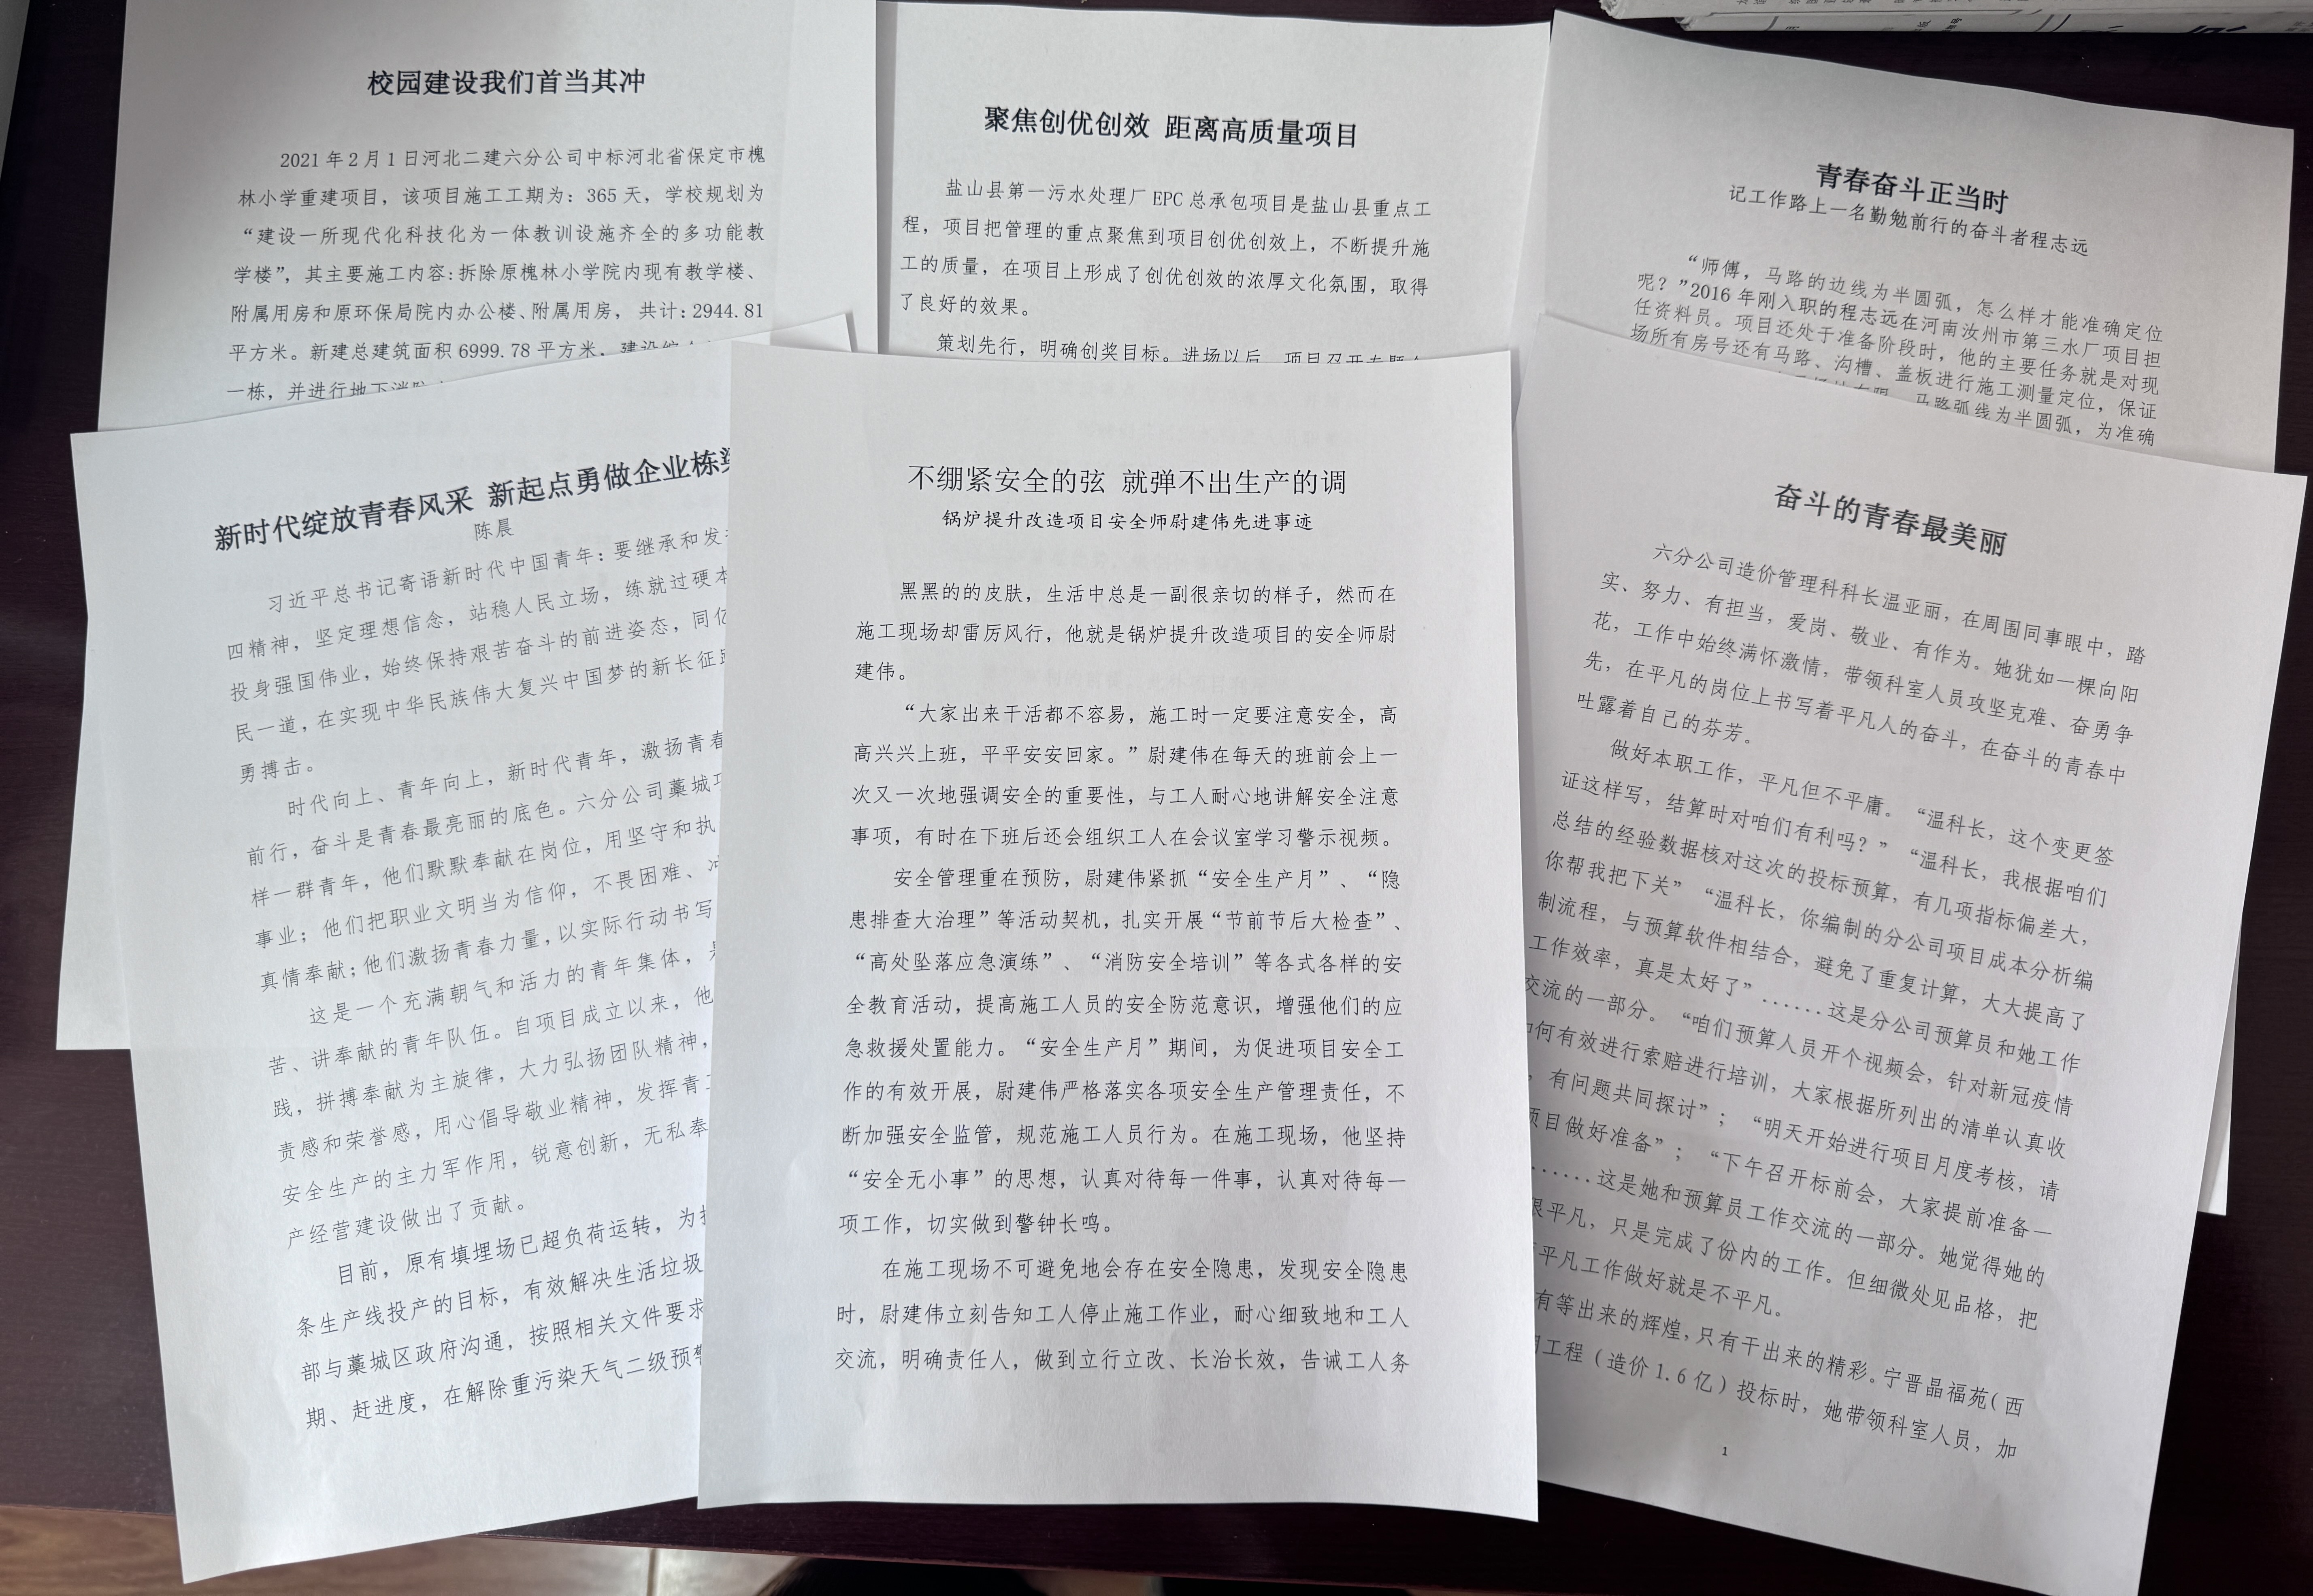 校园建设我们首当其冲
2021 年 2 月 1 日河北二建六分公司中标河北省保定市槐
林小学重建项目，该项目施工工期为：365 天，学校规划为
“建设一所现代化科技化为一体教训设施齐全的多功能教
学楼”，其主要施工内容：拆除原槐林小学院内现有教学楼、
附属用房和原环保局院内办公楼、附属用房， 共计：2944.81
平方米。新建总建筑面积 6999.78 平方米，建设综
一栋，并进行地下消防
聚焦创优创效 距离高质量项目
盐山县第一污水处理厂 EPC 总承包项目是盐山县重点工
程，项目把管理的重点聚焦到项目创优创效上，不断提升施
工的质量，在项目上形成了创优创效的浓厚文化氛围，取得
了良好的效果。
策划先行，明确创奖目标。进场以后，项目召开专题会
青春奋斗正当时
记工作路上一名勤勉前行的奋斗者程志远
“师傅，马路的边线为半圆弧，怎么样才能准确定位
呢？”2016 年刚入职的程志远在河南汝州市第三水厂项目担
任资料员。项目还处于准备阶段时，他的主要任务就是对现
场所有房号还有马路、沟槽、盖板进行施工测量定位，保证
马路弧线为半圆弧，为准确
新时代绽放青春风采 新起点勇做企业栋梁
陈晨
习近平总书记寄语新时代中国青年：要继承和发
四精神，坚定理想信念，站稳人民立场，练就过硬本
投身强国伟业，始终保持艰苦奋斗的前进姿态，同亿
民一道，在实现中华民族伟大复兴中国梦的新长征路
勇搏击。
时代向上、青年向上，新时代青年，激扬青春
前行，奋斗是青春最亮丽的底色。六分公司藁城项
样一群青年，他们默默奉献在岗位，用坚守和执
事业；他们把职业文明当为信仰，不畏困难、
真情奉献；他们激扬青春力量，以实际行动书写
这是一个充满朝气和活力的青年集体，是
苦、讲奉献的青年队伍。自项目成立以来，他
践，拼搏奉献为主旋律，大力弘扬团队精神，
责感和荣誉感，用心倡导敬业精神，发挥青工
安全生产的主力军作用，锐意创新，无私奉
产经营建设做出了贡献。
目前，原有填埋场已超负荷运转，为
条生产线投产的目标，有效解决生活垃圾
部与藁城区政府沟通，按照相关文件要求
期、赶进度，在解除重污染天气二级预警
不绷紧安全的弦 就弹不出生产的调
锅炉提升改造项目安全师尉建伟先进事迹
黑黑的的皮肤，生活中总是一副很亲切的样子，然而在
施工现场却雷厉风行，他就是锅炉提升改造项目的安全师尉
建伟。
“大家出来干活都不容易，施工时一定要注意安全，高
高兴兴上班，平平安安回家。”尉建伟在每天的班前会上一
次又一次地强调安全的重要性，与工人耐心地讲解安全注意
事项，有时在下班后还会组织工人在会议室学习警示视频。
安全管理重在预防，尉建伟紧抓“安全生产月”、“隐
患排查大治理”等活动契机，扎实开展“节前节后大检查”、
“高处坠落应急演练”、“消防安全培训”等各式各样的安
全教育活动，提高施工人员的安全防范意识，增强他们的应
急救援处置能力。“安全生产月”期间，为促进项目安全工
作的有效开展，尉建伟严格落实各项安全生产管理责任，不
断加强安全监管，规范施工人员行为。在施工现场，他坚持
“安全无小事”的思想，认真对待每一件事，认真对待每一
项工作，切实做到警钟长鸣。
在施工现场不可避免地会存在安全隐患，发现安全隐患
时，尉建伟立刻告知工人停止施工作业，耐心细致地和工人
交流，明确责任人，做到立行立改、长治长效，告诫工人务
奋斗的青春最美丽
六分公司造价管理科科长温亚丽，在周围同事眼中，踏
实、努力、有担当，爱岗、敬业、有作为。她犹如一棵向阳
花，工作中始终满怀激情，带领科室人员攻坚克难、奋勇争
先，在平凡的岗位上书写着平凡人的奋斗，在奋斗的青春中
吐露着自己的芬芳。
做好本职工作，平凡但不平庸。“温科长，这个变更签
证这样写，结算时对咱们有利吗？”“温科长，我根据咱们
总结的经验数据核对这次的投标预算，有几项指标偏差大，
你帮我把下关”“温科长，你编制的分公司项目成本分析编
制流程，与预算软件相结合，避免了重复计算，大大提高了
工作效率，真是太好了”......这是分公司预算员和她工作
交流的一部分。“咱们预算人员开个视频会，针对新冠疫情
如何有效进行索赔进行培训，大家根据所列出的清单认真收
，有问题共同探讨”；“明天开始进行项目月度考核，请
项目做好准备”；“下午召开标前会，大家提前准备一
......这是她和预算员工作交流的一部分。她觉得她的
很平凡，只是完成了份内的工作。但细微处见品格，把
平凡工作做好就是不平凡。
有等出来的辉煌，只有干出来的精彩。宁晋晶福苑（西
工程（造价 1.6 亿）投标时，她带领科室人员，加
1